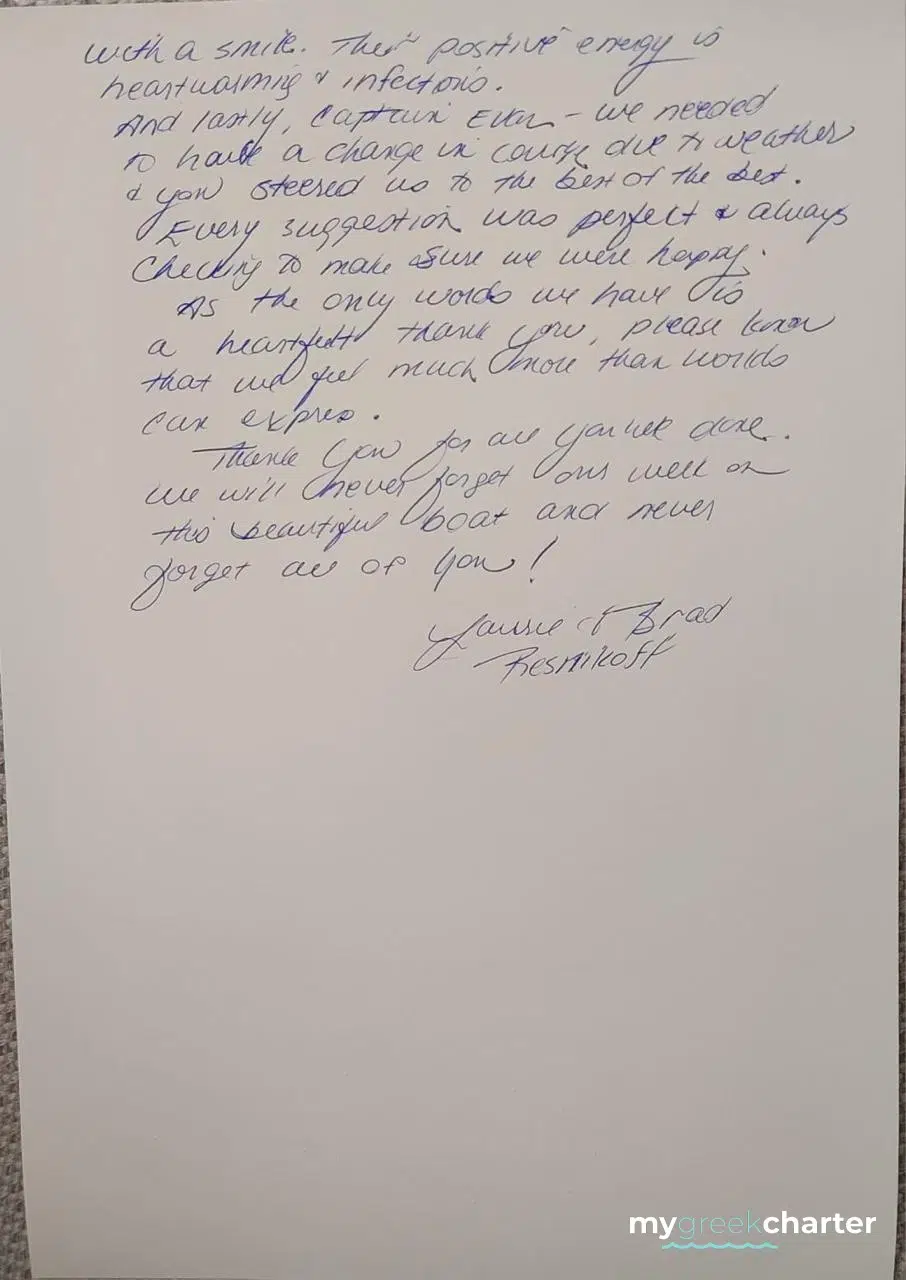 with a smile. Their positive energy is
heartwarming & infectious.
And lastly, Captain Evan - we needed
to have a change in course due to weather
& you steered us to the best of the best.
Every suggestion was perfect & always
checking to make sure we were happy.
As the only words we have is
a heartfelt thank you, please know
that we feel much more than words
can express.
Thank you for all you've done.
We will never forget our week on
this beautiful boat and never
forget all of you!
Laurie & Brad
Resnikoff
mygreekcharter